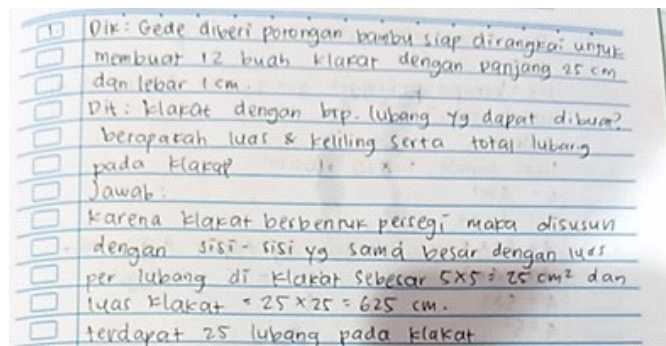 1. Dik: Gede diberi potongan bambu siap dirangkai untuk
membuat 12 buah klakat dengan panjang 25 cm
dan lebar 1 cm.
Dit: klakat dengan brp. lubang yg dapat dibuat?
berapakah luas & keliling serta total lubang
pada klakat
Jawab:
karena klakat berbentuk persegi maka disusun
dengan sisi-sisi yg sama besar dengan luas
per lubang di klakat sebesar 5x5 = 25 cm² dan
luas klakat = 25 x 25 = 625 cm.
terdapat 25 lubang pada klakat